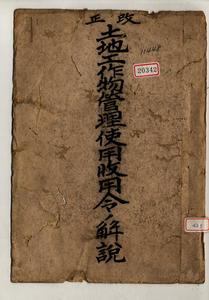 改正
土地工作物管理使用收用令ノ解說
11448
20342